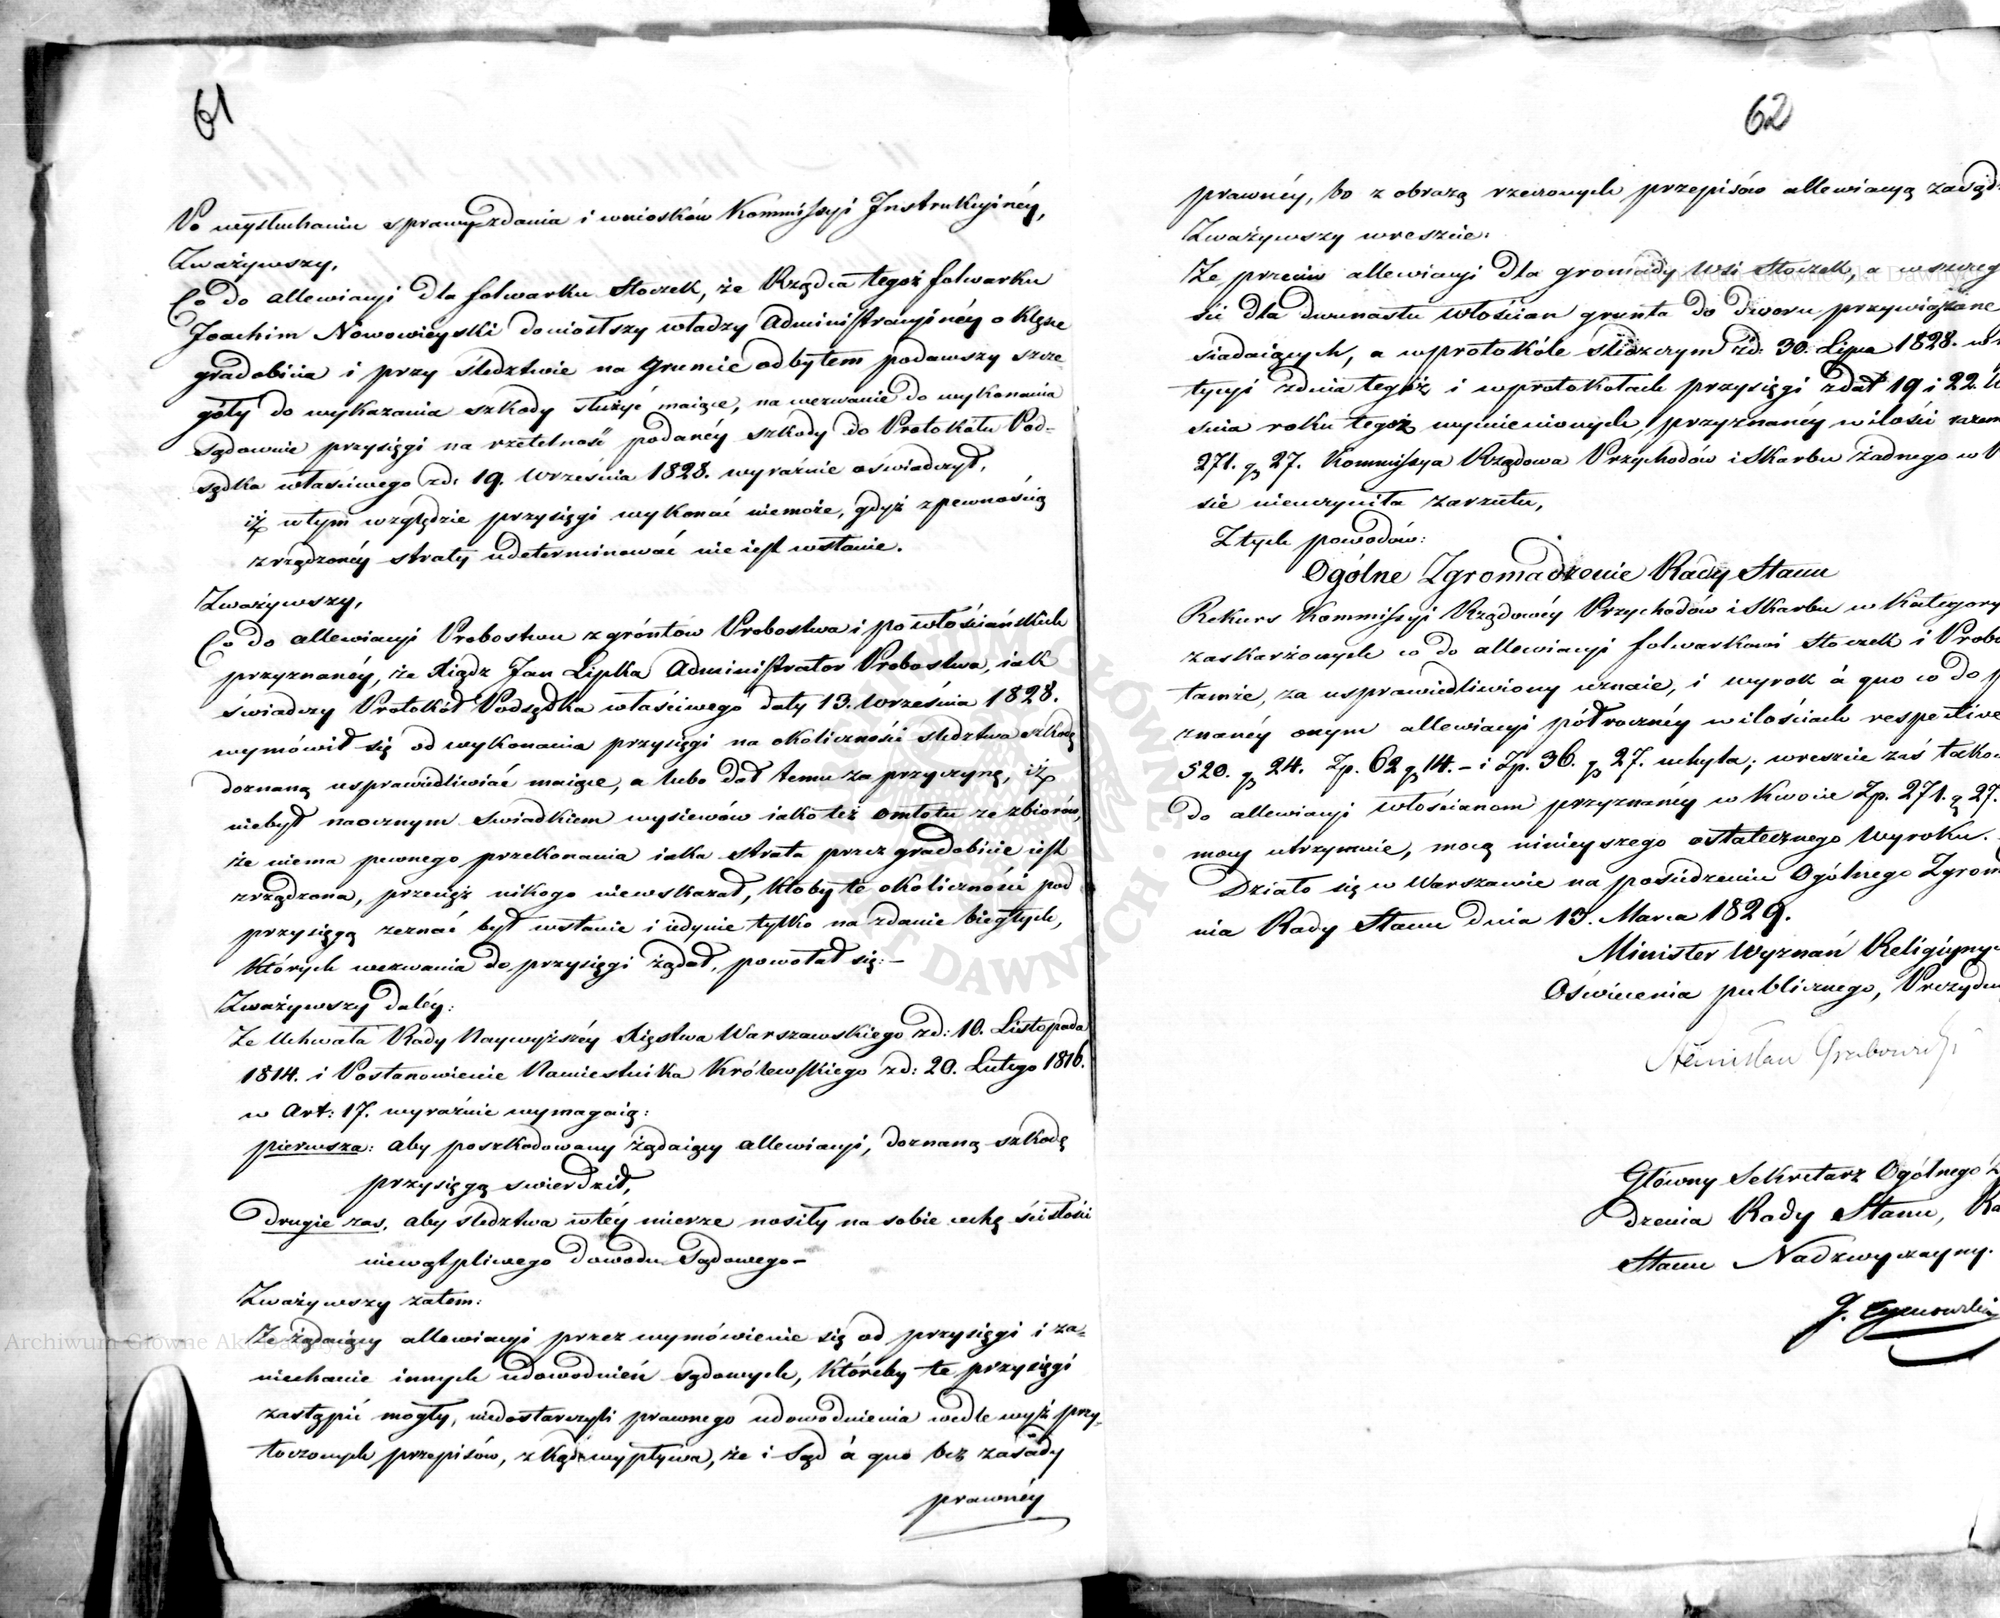 61
Po wysłuchaniu sprawozdania i wniosków Kommissyi Instrukcyinéy,
Zważywszy,
Co do allewiacyi dla folwarku Stoczek, że Rządca tegoż folwarku
Joachim Nowowieyski doniosłszy władzy Administracyinéy o klęsce
gradobicia i przy śledztwie na gruncie odbytem podawszy szcze-
góły do wykazania szkody służyć maiące, na wezwanie do wykonania
sądownie przysięgi na rzetelność podanéy szkody do Protokółu Pod-
sędka właściwego zd: 19. Września 1828. wyraźnie oświadczył,
iż wtym względzie przysięgi wykonać niemoże, gdyż zpewnością
zrządzonéy straty udeterminować nie iest wstanie.
Zważywszy,
Co do allewiacyi Probostwu z gróntów Probostwa i po włościańskich
przyznanéy, że Xiądz Jan Lipka Administrator Probostwa, iak
świadczy Protokół Podsędka właściwego daty 13. Września 1828.
wymówił się od wykonania przysięgi na okoliczności śledztwa szkodę
doznaną usprawiedliwiać maiące, a lubo dał temu za przyczynę, iż
niebył naocznym świadkiem wysiewów iako też omłotu ze zbiorów,
że niema pewnego przekonania iaka strata przez gradobicie iest
zrządzona, przecież nikogo niewskazał, któby te okoliczności pod
przysięgą zeznać był wstanie i iedynie tylko na zdanie biegłych,
których wezwania do przysięgi żądał, powołał się:-
Zważywszy daléy:
Że Uchwała Rady Naywyższéy Xięstwa Warszawskiego zd: 10. Listopada
1814. i Postanowienie Namiestnika Królewskiego zd: 20. Lutego 1816.
w Art: 17. wyraźnie wymagaią:
pierwsza: aby poszkodowany żądaiący allewiacyi, doznaną szkodę
przysięgą stwierdził,
drugie zaś, aby śledztwa wtéy mierze nosiły na sobie cechę ścisłości
niewątpliwego dowodu Sądowego-
Zważywszy zatem:
Że żądaiący allewiacyi przez wymówienie się od przysięgi i za-
niechanie innych udowodnień sądowych, któreby te przysięgi
zastąpić mogły, niedostarczyli prawnego udowodnienia wedle wyż przy-
toczonych przepisów, zkąd wypływa, że i Sąd à quo bez zasady
prawnéy
62
prawnéy, bo z obrazą rzeczonych przepisów allewiacyą zasąd-
Zważywszy wreszcie:
Że przeciw allewiacyi dla gromady Wsi Stoczek, a w szczeg
ści dla dwunastu włościan grunta do dworu przywiązane
siadaiących, a wprotokóle śledczym zd: 30. Lipca 1828. w
tycyi zdnia tegoż i wprotokołach przysięgi zdat 19 i 22. W
śnia roku tegoż wymienionych, przyznanéy w ilości razem
271. g 27. Kommissya Rządowa Przychodów i Skarbu żadnego w
sie nieuczyniła zarzutu,
Z tych powodów:
Ogólne Zgromadzenie Rady Stanu
Rekurs Kommissyi Rządowéy Przychodów i Skarbu w kategory
zaskarżonych co do allewiacyi folwarkowi Stoczek i Probo
tamże, za usprawiedliwiony uznaie, i wyrok à quo co do p
znanéy onym allewiacyi półrocznéy w ilościach respective
520. g 24. Zp. 62 g 14. - i Zp. 36. g 27. uchyla; wreszcie zaś tako
do allewiacyi włościanom przyznanéy w kwocie Zp. 271. g 27.
mocy utrzymuie, mocą ninieyszego ostatecznego Wyroku.
Działo się w Warszawie na posiedzeniu Ogólnego Zgrom
nia Rady Stanu dnia 13. Marca 1829.
Minister Wyznań Religiynyc
Oświecenia publicznego, Prezydu
Stanisław Grabowski
Główny Sekretarz Ogólnego Z
dzenia Rady Stanu, Ra
Stanu Nadzwyczayny.
Archiwum Główne Akt Dawnych